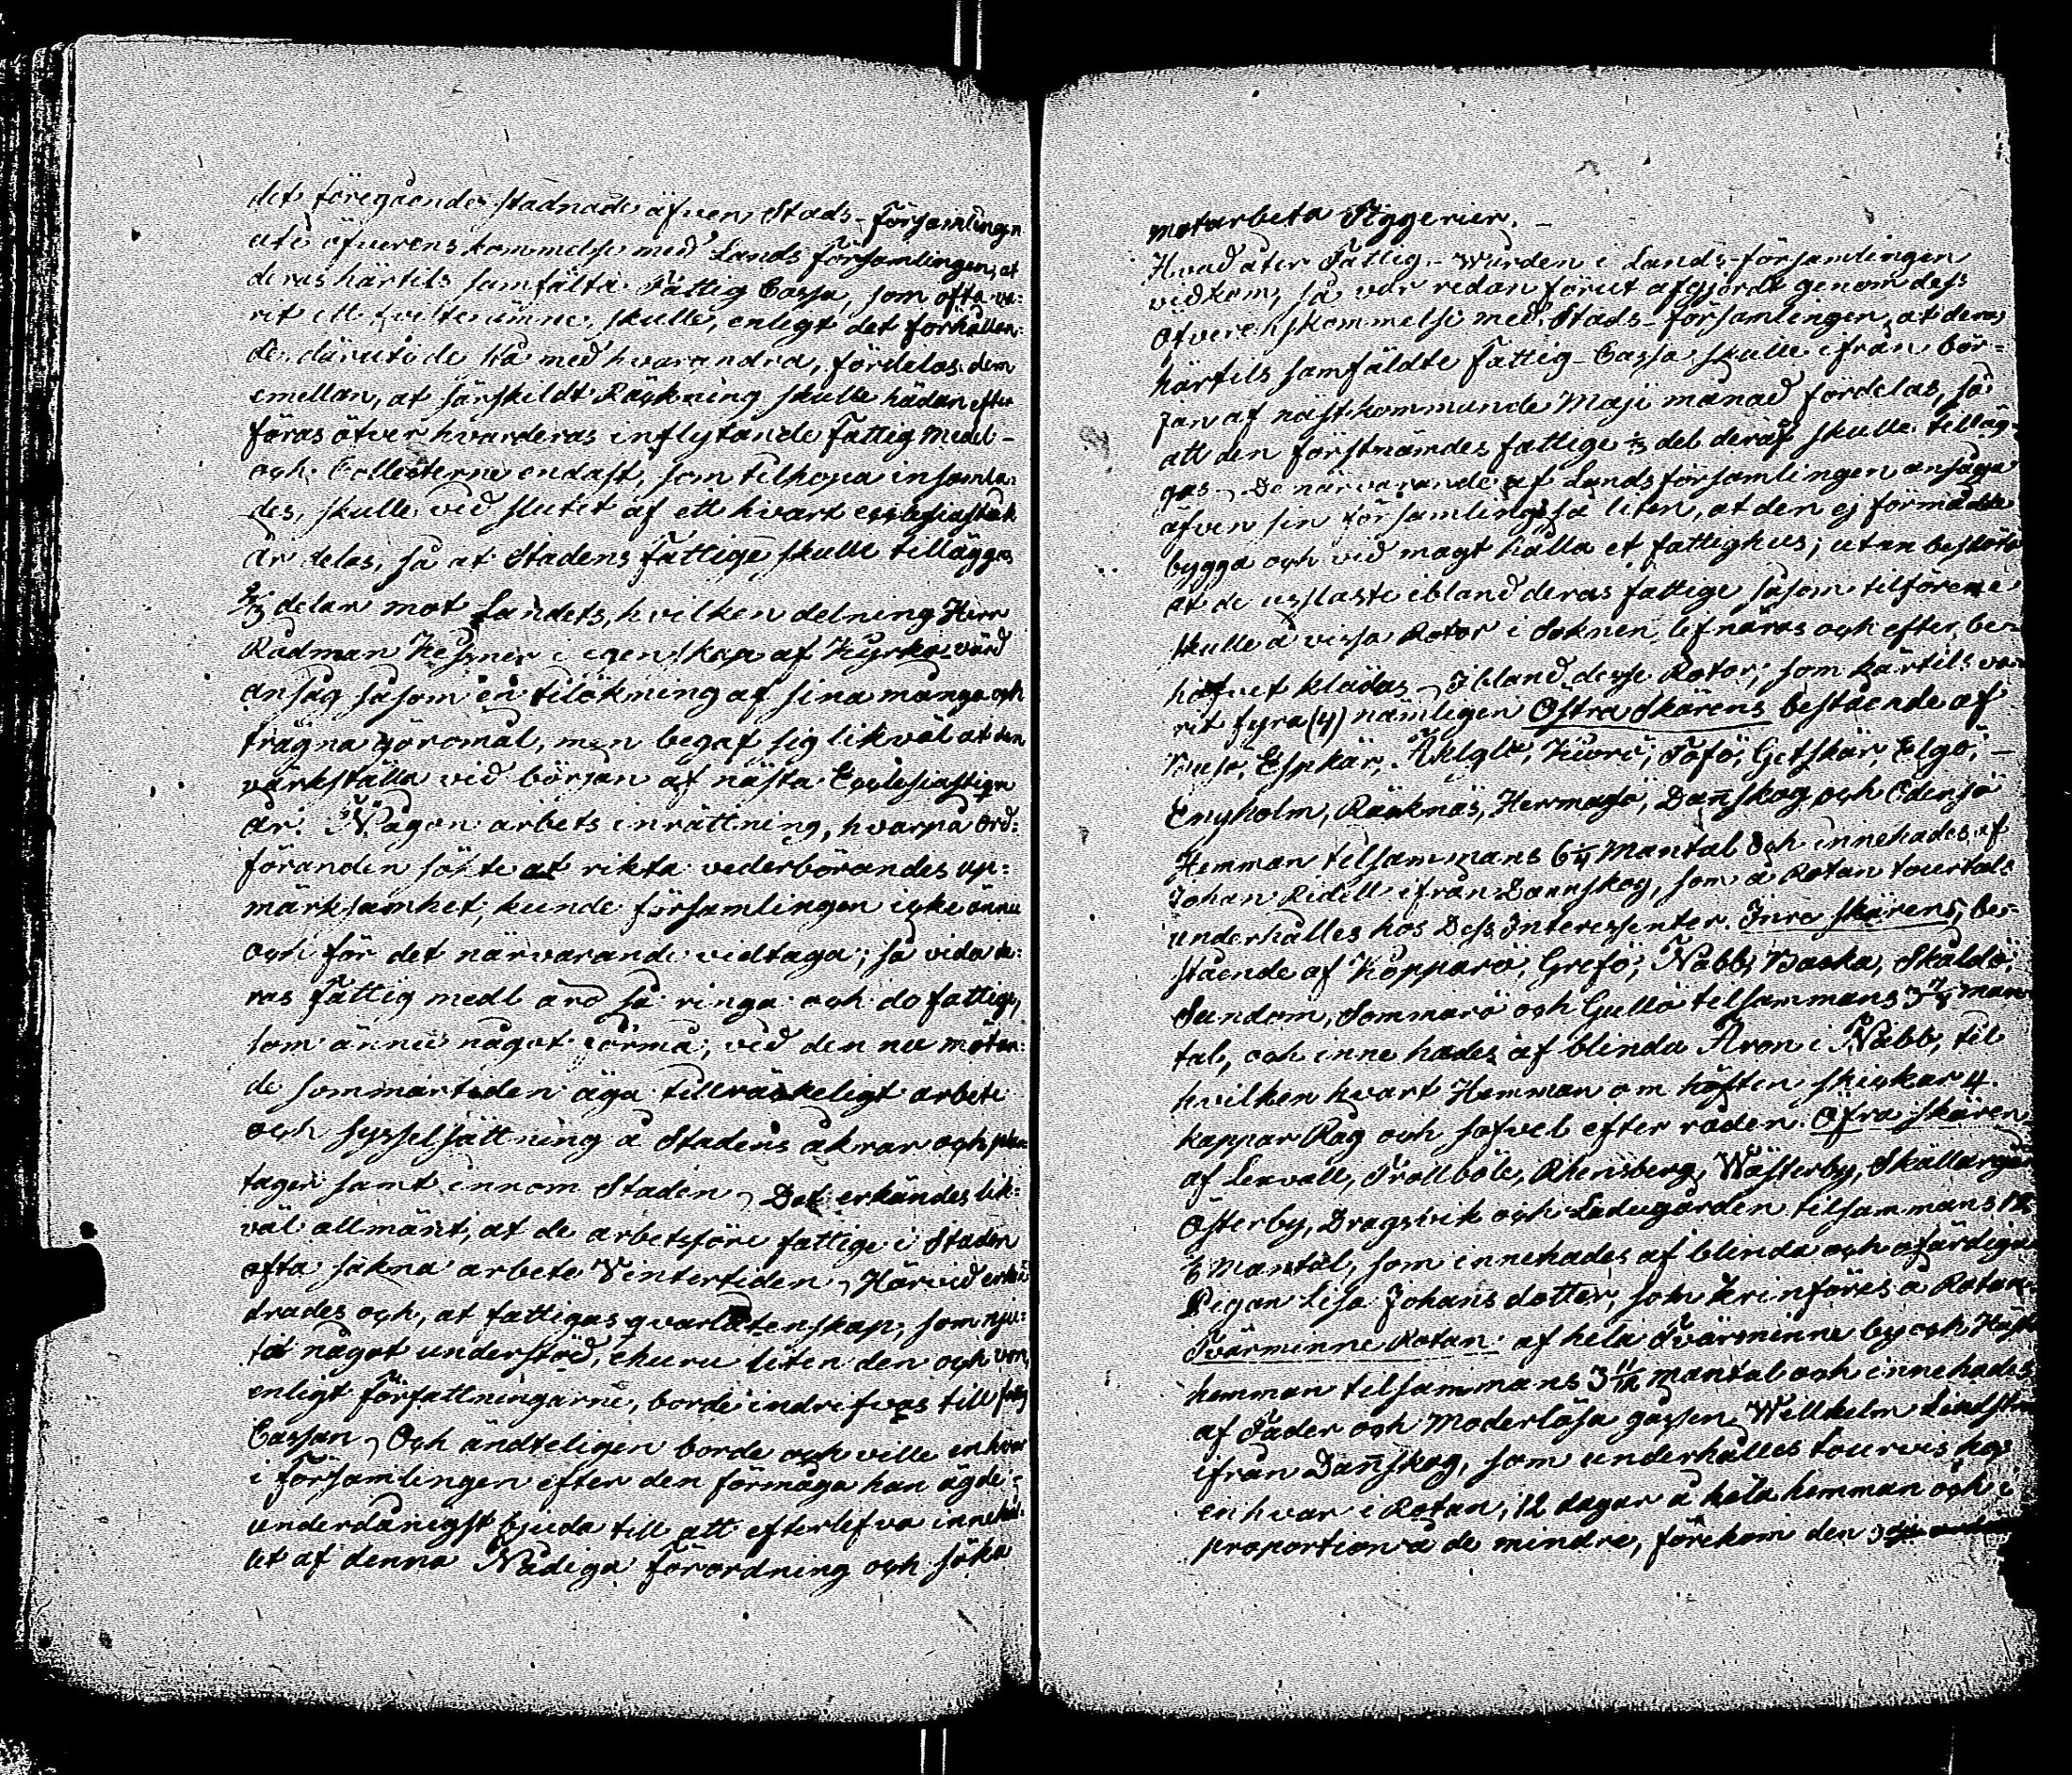 det föregående stadnade äfven Stads-församlingen
uti öfverens kommelse med Lands församlingen, at
deras härtils samfälta Fattig Cassa, som ofta va:
rit ett tviste ämne, skulle, enligt det förhållen:
de, däruti de stå med hvarandra, fördelas dem
emellan, at särskildt Räckning skulle hädan efter
föras öfver hvarderas inflytande Fattig medel –
och Collecterne endast, som tilhopa insamla:
des, skulle vid slutet af ett hvart ecclesiastikt
år delas, så at Stadens Fattige skulle tilläggas
2/3 delar mot Landets, hvilken delning Herr
Rådman Hessner i egenskap af Kyrko-värd
ansåg såsom en tilökning af sina många och
trägna göromål, men begaf sig likväl at den
värkställa vid början af nästa Ecclesiastiqa
år. Någon arbets inrättning, hvarpå Ord:
föranden sökte at rikta vederbörandes up:
märksamhet, kunde församlingen icke ännu
och för det närvarande vidtaga; så vida de:
ras Fattig medl äro så ringa och do fattige,
som ännu något förmå, vid den nu mötan:
de sommartiden äga tillräckeligt arbete
och sysselsättning å Stadens åkrar och
tager samt innom Staden, Det erkändes lik:
väl allmänt, at de arbetsföre fattige i Staden
ofta sakna arbete Vintertiden, Härvid
drades och, at fattigas qvarlåtenskap, som nju:
tit något understöd, ehuru liten den och vore,
enligt författningarne, borde indrifvas till
Cassan, Och ändteligen borde och ville en hvar
i församlingen efter den förmåga han ägde,
underdånigst bjuda till att efterlefva innehål:
let af denna Nådiga förordning och söka
motarbeta Tiggerier. –
Hvad åter Fattig-Wården i Lands-församlingen
vidkom, så var redan förut afgjordt genom dess
öfverenskommelse med Stads-församlingen, at deras
härtils samfäldte Fattig-Cassa skulle ifrån bör:
jan af nästkommande Maji månad fördelas, så
att den förstnämdes fattige 1/3 del deraf skulle tilläg:
gas, De närvarande af Landsförsamlingen ansågo
äfven sin församling så liten, at den ej förmådde
bygga och vid magt hålla et fattighus; utan beslöto
at de usslaste ibland deras fattige såsom tilförene
skulle å vissa Rotor i Soknen lifnäras och efter be:
hofvet klädas, Ibland desse Rotor, som härtils va:
rit fyra (4) nämligen Östra Skärens bestående af
Buso, Espkär, Älglö, Kurö, Tofö, Getskär, Elgö, –
Enyholm, Räcknäs, Hermasö, Dañskog och Odensö
Hemman tilsammans 6 1/4 Mantal och innehades af
Johan Ridell ifrån Dannskog, som å Rotan tourtals
underhålles hos Dess Interessenter. Inre skärens, be:
stående af Kopparö, Grefö, Nabb, Baska, Skåldö,
Sundom, Sommarö och Gullö tilsammans 3 man
tal, och inne hades af blinda Aron i Nabb, til
hvilken hvart Hemman om hösten skickar 4.
kappar Råg och sofvel efter råden. Öfra skären
af Lexvall, Trollböle, Rhensberg, Wästerby, Skallargård
Österby, Dragsvik och Ladugården tilsammans 12
Mantal, som innehades af blinda och ofärdiga
Pigan Lisa Johans dotter, som kringföres å Rotan.
Tvärminne Rotan: af hela Tvärminne by och
hemman tilsammans 3 11/12 mantal och innehades
af Fader och Moderlösa gåssen Willhelm
ifrån Dañskog, som underhålles tourvis hos
en hvar i Rotan, 12 dagar å hela hemman och i
proportion å de mindre, förekom den